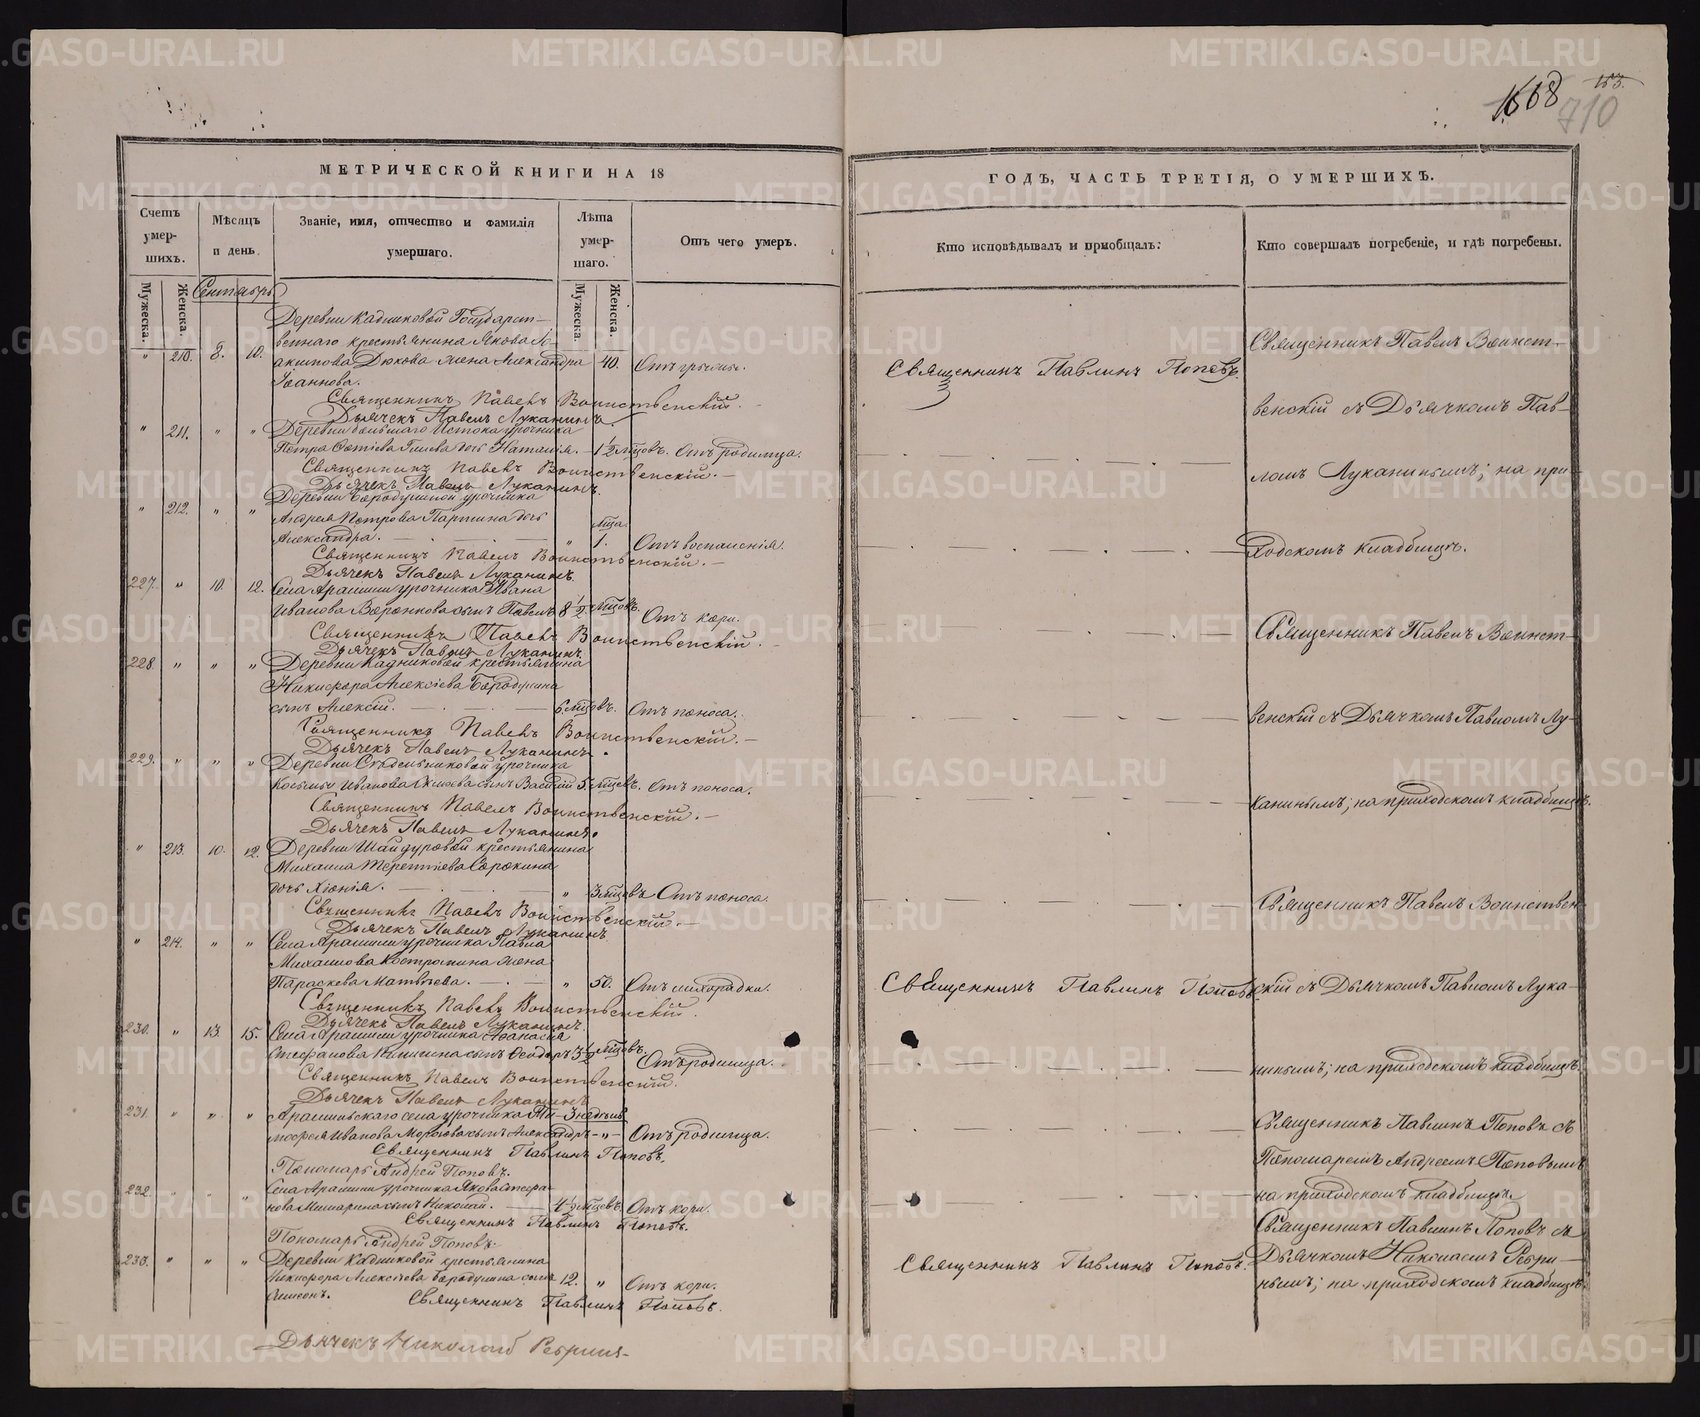 153.
1668
710
МЕТРИЧЕСКОЙ КНИГИ НА 18
ГОДЪ, ЧАСТЬ ТРЕТІЯ, О УМЕРШИХЪ.
Счетъ умер-шихъ.
Мѣсяцъ и день.
Званіе, имя, отчество и фамилія умершаго.
Лѣта умер-шаго.
Отъ чего умеръ.
Кто исповѣдывалъ и приобщалъ:
Кто совершалъ погребеніе, и гдѣ погребены.
Мужеска.
Женска.
Сентябрь
Мужеска
Женска.
Деревни Кадниковой Государст-
веннаго крестьянина Якова
" 210. 8. 10. Дюкова жена Александра 40.
Іоаннова.
Священникъ Павелъ Воинственскій.
Дьячекъ Павелъ Луканинъ.
" 211. " " Деревни большаго Истока урочника
Петра дочь Наталія. 1 1/2 мѣсцовъ. Отъ родимца.
Священникъ Павелъ Воинственскій.
Дьячекъ Павелъ Луканинъ.
" 212. " " Деревни урочника
Андрея Петрова Паршина дочь мѣсца.
Александра. " 1. Отъ воспаленія.
Священникъ Павелъ Воинственскій.
Дьячекъ Павелъ Луканинъ.
227. " 10. 12. Села Арамили урочника Ивана
Иванова сынъ Павелъ 8 1/2 мѣсцовъ. Отъ кори.
Священникъ Павелъ Воинственскій.
Дьячекъ Павелъ Луканинъ.
228 " " " Деревни Кадниковой крестьянина
Никифора Алексіева Бородулина
сынъ Алексій. 6 мѣсцовъ. Отъ поноса.
Священникъ Павелъ Воинственскій.
Дьячекъ Павелъ Луканинъ.
229. " " " Деревни урочника
Космы Иванова сынъ Василій 5 мѣсцовъ. Отъ поноса.
Священникъ Павелъ Воинственскій.
Дьячекъ Павелъ Луканинъ.
" 213. 10. 12. Деревни Шайдуровой крестьянина
Михаила Терентіева Сорокина
дочь Хіонія. " 3 мѣсцовъ Отъ поноса.
Священникъ Павелъ Воинственскій.
Дьячекъ Павелъ Луканинъ
" 214. " " Села Арамили урочника Павла
Михаилова Костромина жена
Параскева Матвѣева. " 50. Отъ лихорадки.
Священникъ Павелъ Воинственскій.
Дьячекъ Павелъ Луканинъ.
230. " 13. 15. Села Арамили урочника Афанасія
Стефанова сынъ Ѳеодоръ 3 1/2 мѣсцовъ. Отъ родимца.
Священникъ Павелъ Воинственскій.
Дьячекъ Павелъ Луканинъ
231. " " " Арамильскаго села урочника Ти- 3 недѣли
моѳея Иванова сынъ Александръ " Отъ родимца.
Священникъ Павлинъ Поповъ.
Пономарь Андрей Поповъ.
232. " " " Села Арамили урочника Якова Стефа-
нова сынъ Николай. 4 1/2 мѣсцовъ. Отъ кори.
Священникъ Павлинъ Поповъ.
Пономарь Андрей Поповъ.
233. " " " Деревни Кадниковой крестьянина
Никифора Алексіева Бородулина сынъ 12. " Отъ кори.
Священникъ Павлинъ Поповъ.
Дьячекъ Николай Ребринъ
Священникъ Павлинъ Поповъ.
Священникъ Павлинъ Поповъ
Священникъ Павлинъ Поповъ.
Священникъ Павелъ Воинст-
венскій съ Дьячкомъ Пав-
ломъ Луканинымъ; на при-
ходскомъ кладбищѣ.
Священникъ Павелъ Воинст-
венскій съ Дьячкомъ Павломъ Лу-
канинымъ; на приходскомъ кладбищѣ.
Священникъ Павелъ Воинствен-
скій съ Дьячкомъ Павломъ Лука-
нинымъ; на приходскомъ кладбищѣ.
Священникъ Павлинъ Поповъ съ
Пономаремъ Андреемъ Поповымъ
на приходскомъ кладбищѣ.
Священникъ Павлинъ Поповъ съ
Дьячкомъ Николаемъ Ребри-
нымъ; на приходскомъ кладбищѣ.
METRIKI.GASO-URAL.RU